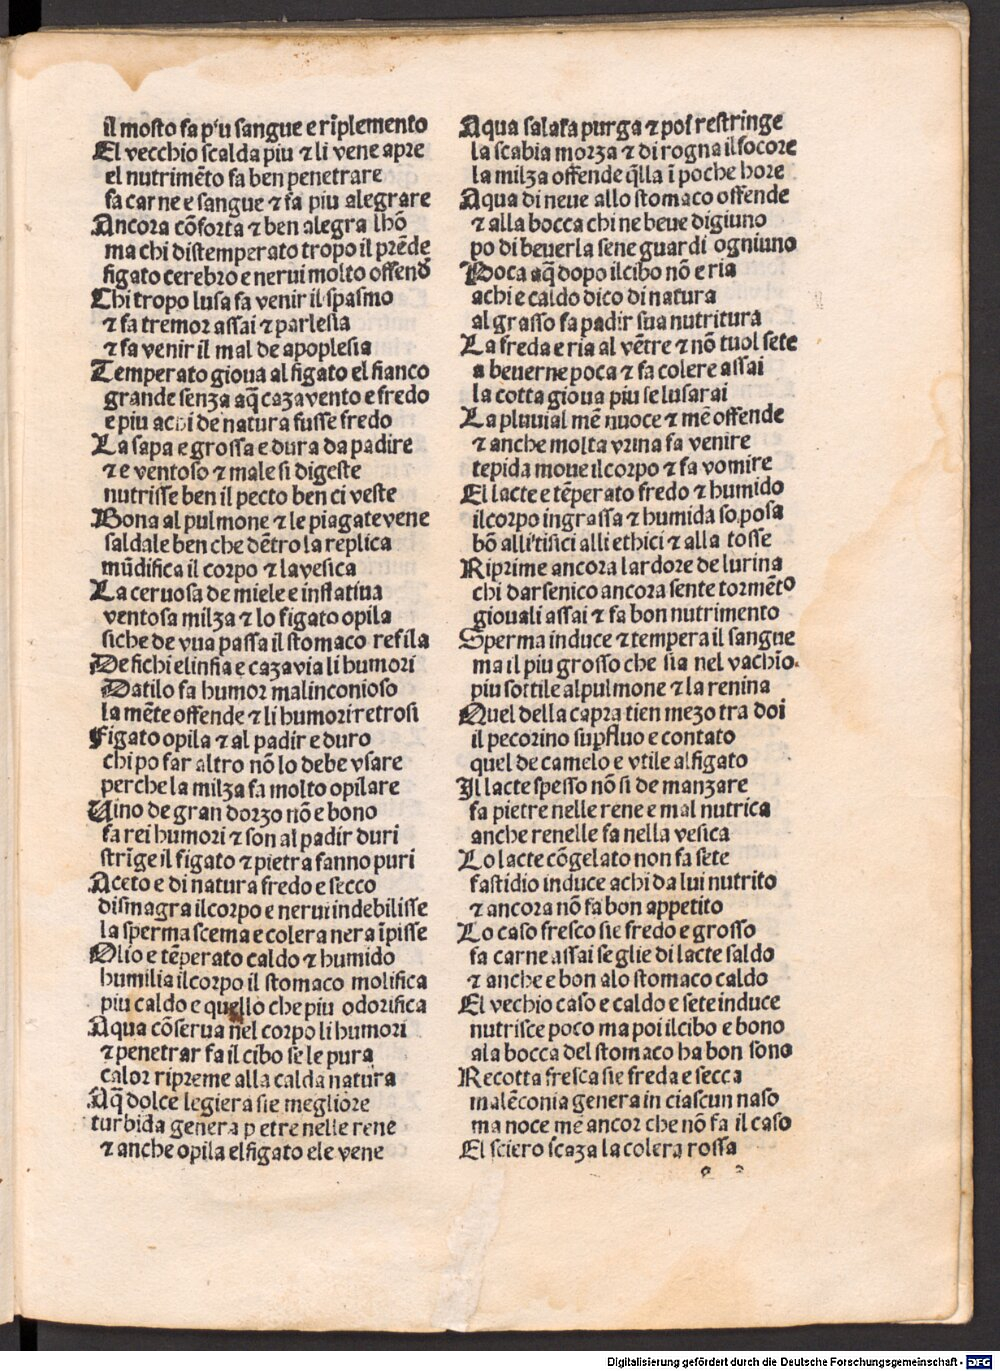 il mosto fa piu sangue e rīplemento
El vecchio scalda piu ⁊ li vene apre
el nutrimēto fa ben penetrare
fa carne e sangue ⁊ fa piu alegrare
Ancora cōforta ⁊ ben alegra lhō
ma chi distemperato tropo il prēde
figato cerebro e nerui molto offend
Chi tropo lusa fa venir il spasmo
⁊ fa tremor assai ⁊ parlesia
⁊ fa venir il mal de apoplesia
Temperato gioua al figato el fianco
grande senza aq̄ caza vento e fredo
e piu achi de natura fusse fredo
La sapa e grossa e dura da padire
⁊ e ventoso ⁊ male si digeste
nutrisse ben il pecto ben ci veste
Bona al pulmone ⁊ le piagate vene
saldale ben che dētro la replica
mūdifica il corpo ⁊ la vesica
La ceruosa de miele e inflatiua
ventosa milza ⁊ lo figato opila
siche de vua passa il stomaco refila
De fichi elinfia e caza via li humori
Datilo fa humor malinconioso
la mēte offende ⁊ li humori retrosi
Figato opila ⁊ al padir e duro
chi po far altro nō lo debe vsare
perche la milza fa molto opilare
Uino de gran dorzo nō e bono
fa rei humori ⁊ son al padir duri
strīge il figato ⁊ pietra fanno puri
Aceto e di natura fredo e secco
dismagra il corpo e nerui indebilisse
la sperma scema e colera nera īpisse
Olio e tēperato caldo ⁊ humido
humilia il corpo il stomaco molifica
piu caldo e quello che piu odorifica
Aqua cōserua nel corpo li humori
⁊ penetrar fa il cibo se le pura
calor ripreme alla calda natura
Aq̄ dolce legiera sie megliore
turbida genera petre nelle rene
⁊ anche opila el figato e le vene
Aqua salata purga ⁊ poi restringe
la scabia morza ⁊ di rogna il focore
la milza offende q̄lla ī poche hore
Aqua di neue allo stomaco offende
⁊ alla bocca chi ne beue digiuno
po di beuerla sene guardi ogniuno
Poca aq̄ dopo il cibo nō e ria
achi e caldo dico di natura
al grasso fa padir sua nutritura
La freda e ria al vētre ⁊ nō tuol sete
a beuerne poca ⁊ fa colere assai
la cotta gioua piu se lusarai
La pluuial mē nuoce ⁊ mē offende
⁊ anche molta vrina fa venire
tepida moue il corpo ⁊ fa vomire
El lacte e tēperato fredo ⁊ humido
il corpo ingrassa ⁊ humida so posa
bō alli tisici alli ethici ⁊ alla tosse
Riprime ancora lardore de lurina
chi darsenico ancora sente tormēto
giouali assai ⁊ fa bon nutrimento
Sperma induce ⁊ tempera il sangue
ma il piu grosso che sia nel vachīo
piu sottile al pulmone ⁊ la renina
Quel della capra tien mezo tra doi
il pecorino sup̱fluo e contato
quel de camelo e vtile al figato
Il lacte spesso nō si de manzare
fa pietre nelle rene e mal nutrica
anche renelle fa nella vesica
Lo lacte cōgelato non fa sete
fastidio induce achi da lui nutrito
⁊ ancora nō fa bon appetito
Lo caso fresco sie fredo e grosso
fa carne assai se glie di lacte saldo
⁊ anche e bon alo stomaco caldo
El vechio caso e caldo e sete induce
nutrisce poco ma poi il cibo e bono
ala bocca del stomaco ha bon sono
Recotta fresca sie freda e secca
malēconia genera in ciascun naso
ma noce mē ancor che nō fa il caso
El sciero scaza la colera rossa
Digitalisierung gefördert durch die Deutsche Forschungsgemeinschaft - DFG